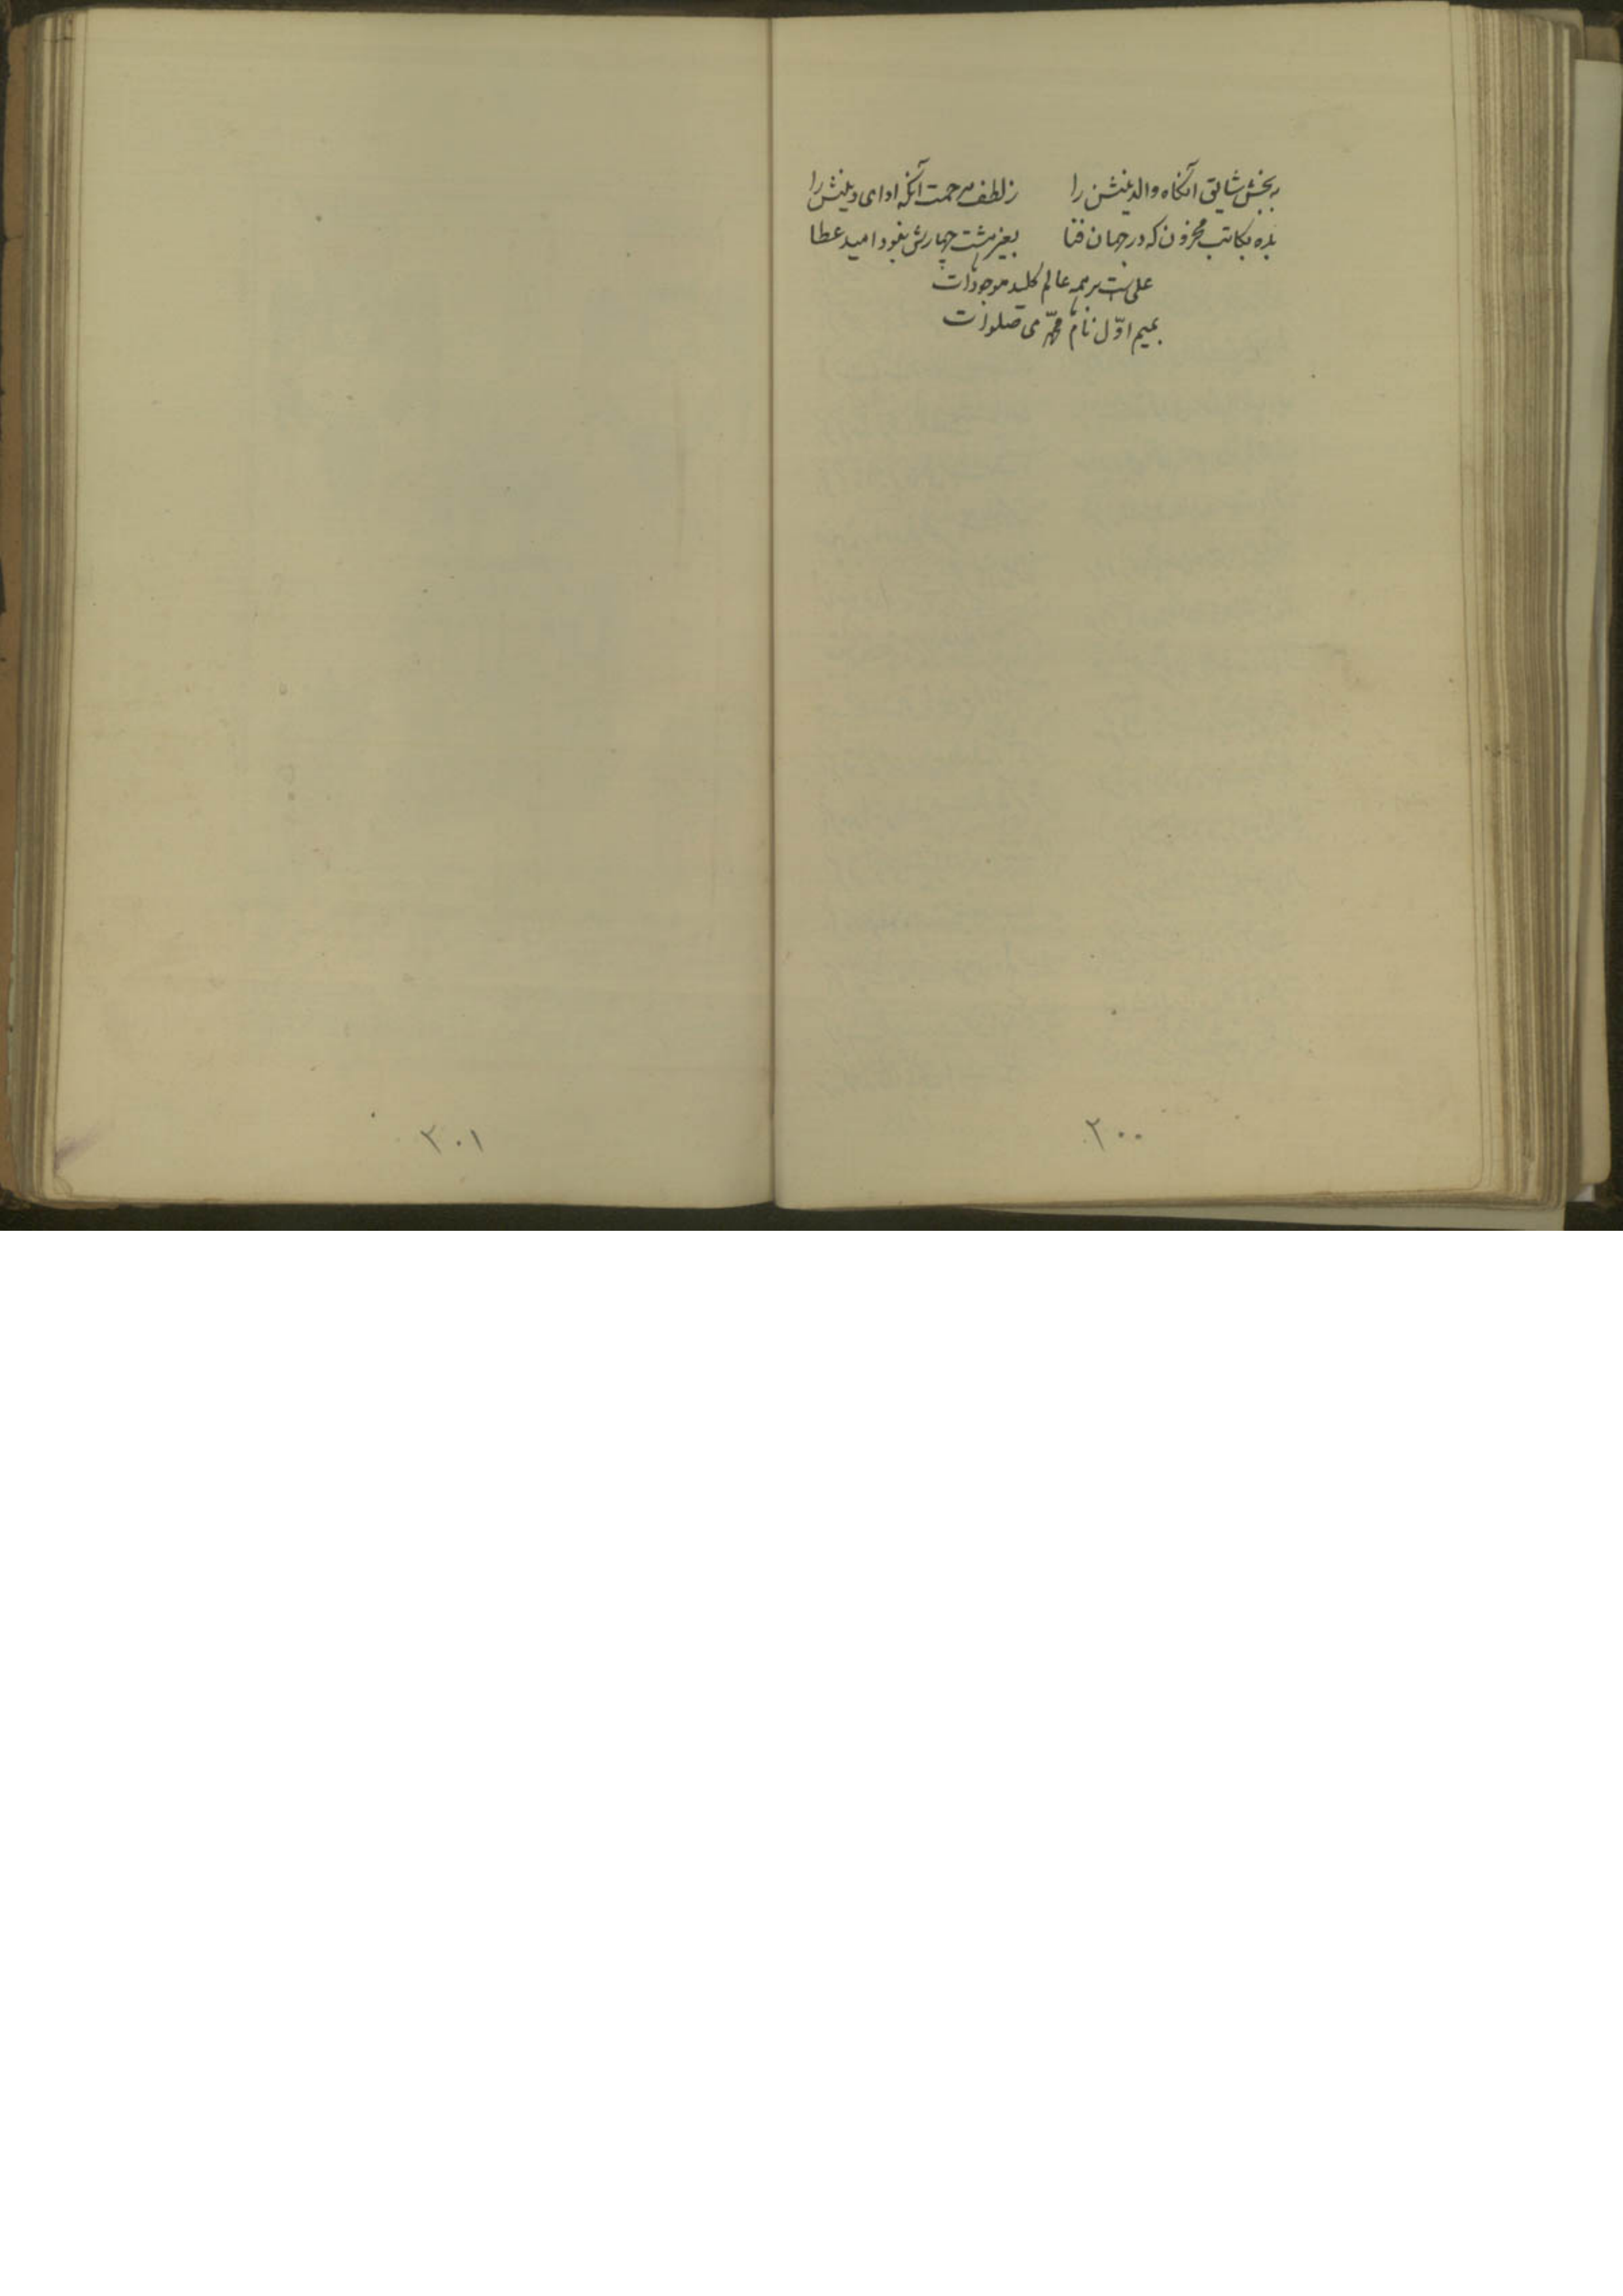 ببخش شایق آنگاه والدینش را ز لطف مرحمت آنگه ادای دینش را
بده بکاتب محزون که در جهان فنا بغیر هشت چهارش نبود امید عطا
علیست بر همه عالم کلید موجودات
بمیم اوّل نام محمّدی صلوات
۲۰۰
۲۰۱